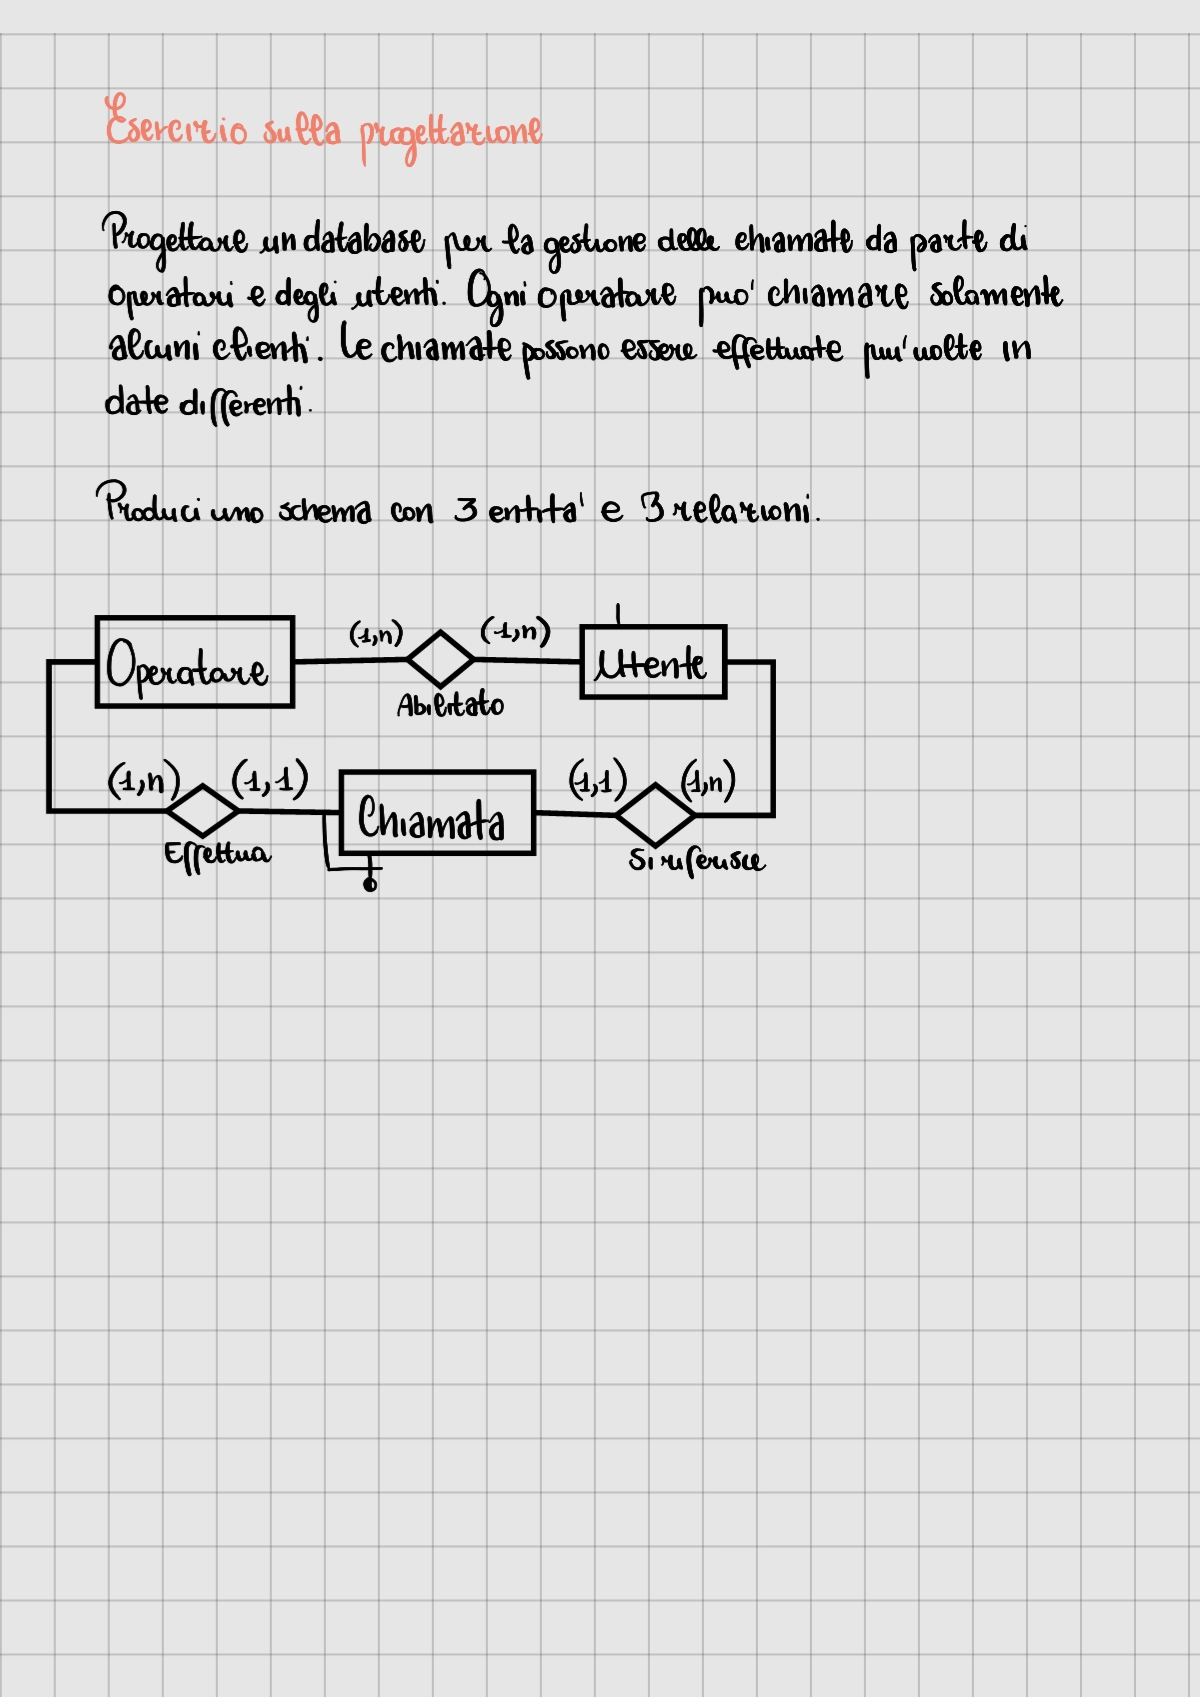 Esercizio sulla progettazione
Progettare un database per la gestione delle chiamate da parte di
operatori e degli utenti. Ogni operatore puo' chiamare solamente
alcuni clienti. Le chiamate possono essere effettuate piu' volte in
date differenti.
Produci uno schema con 3 entita' e 3 relazioni.
Operatore (1,n) (1,n) Utente
Abilitato
(1,n) (1,1) Chiamata (1,1) (1,n)
Effettua Si riferisce